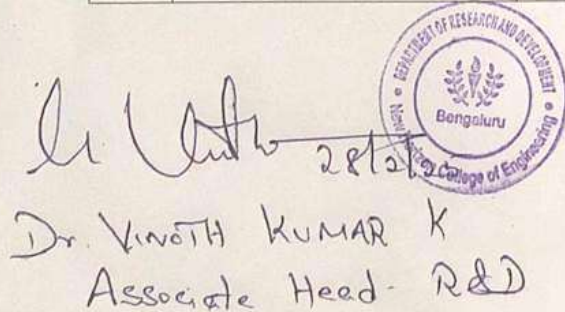 DEPARTMENT OF RESEARCH AND DEVELOPMENT
Bengaluru
New Horizon College of Engineering
28/2/
Dr. VINOTH KUMAR K
Associate Head - R&D